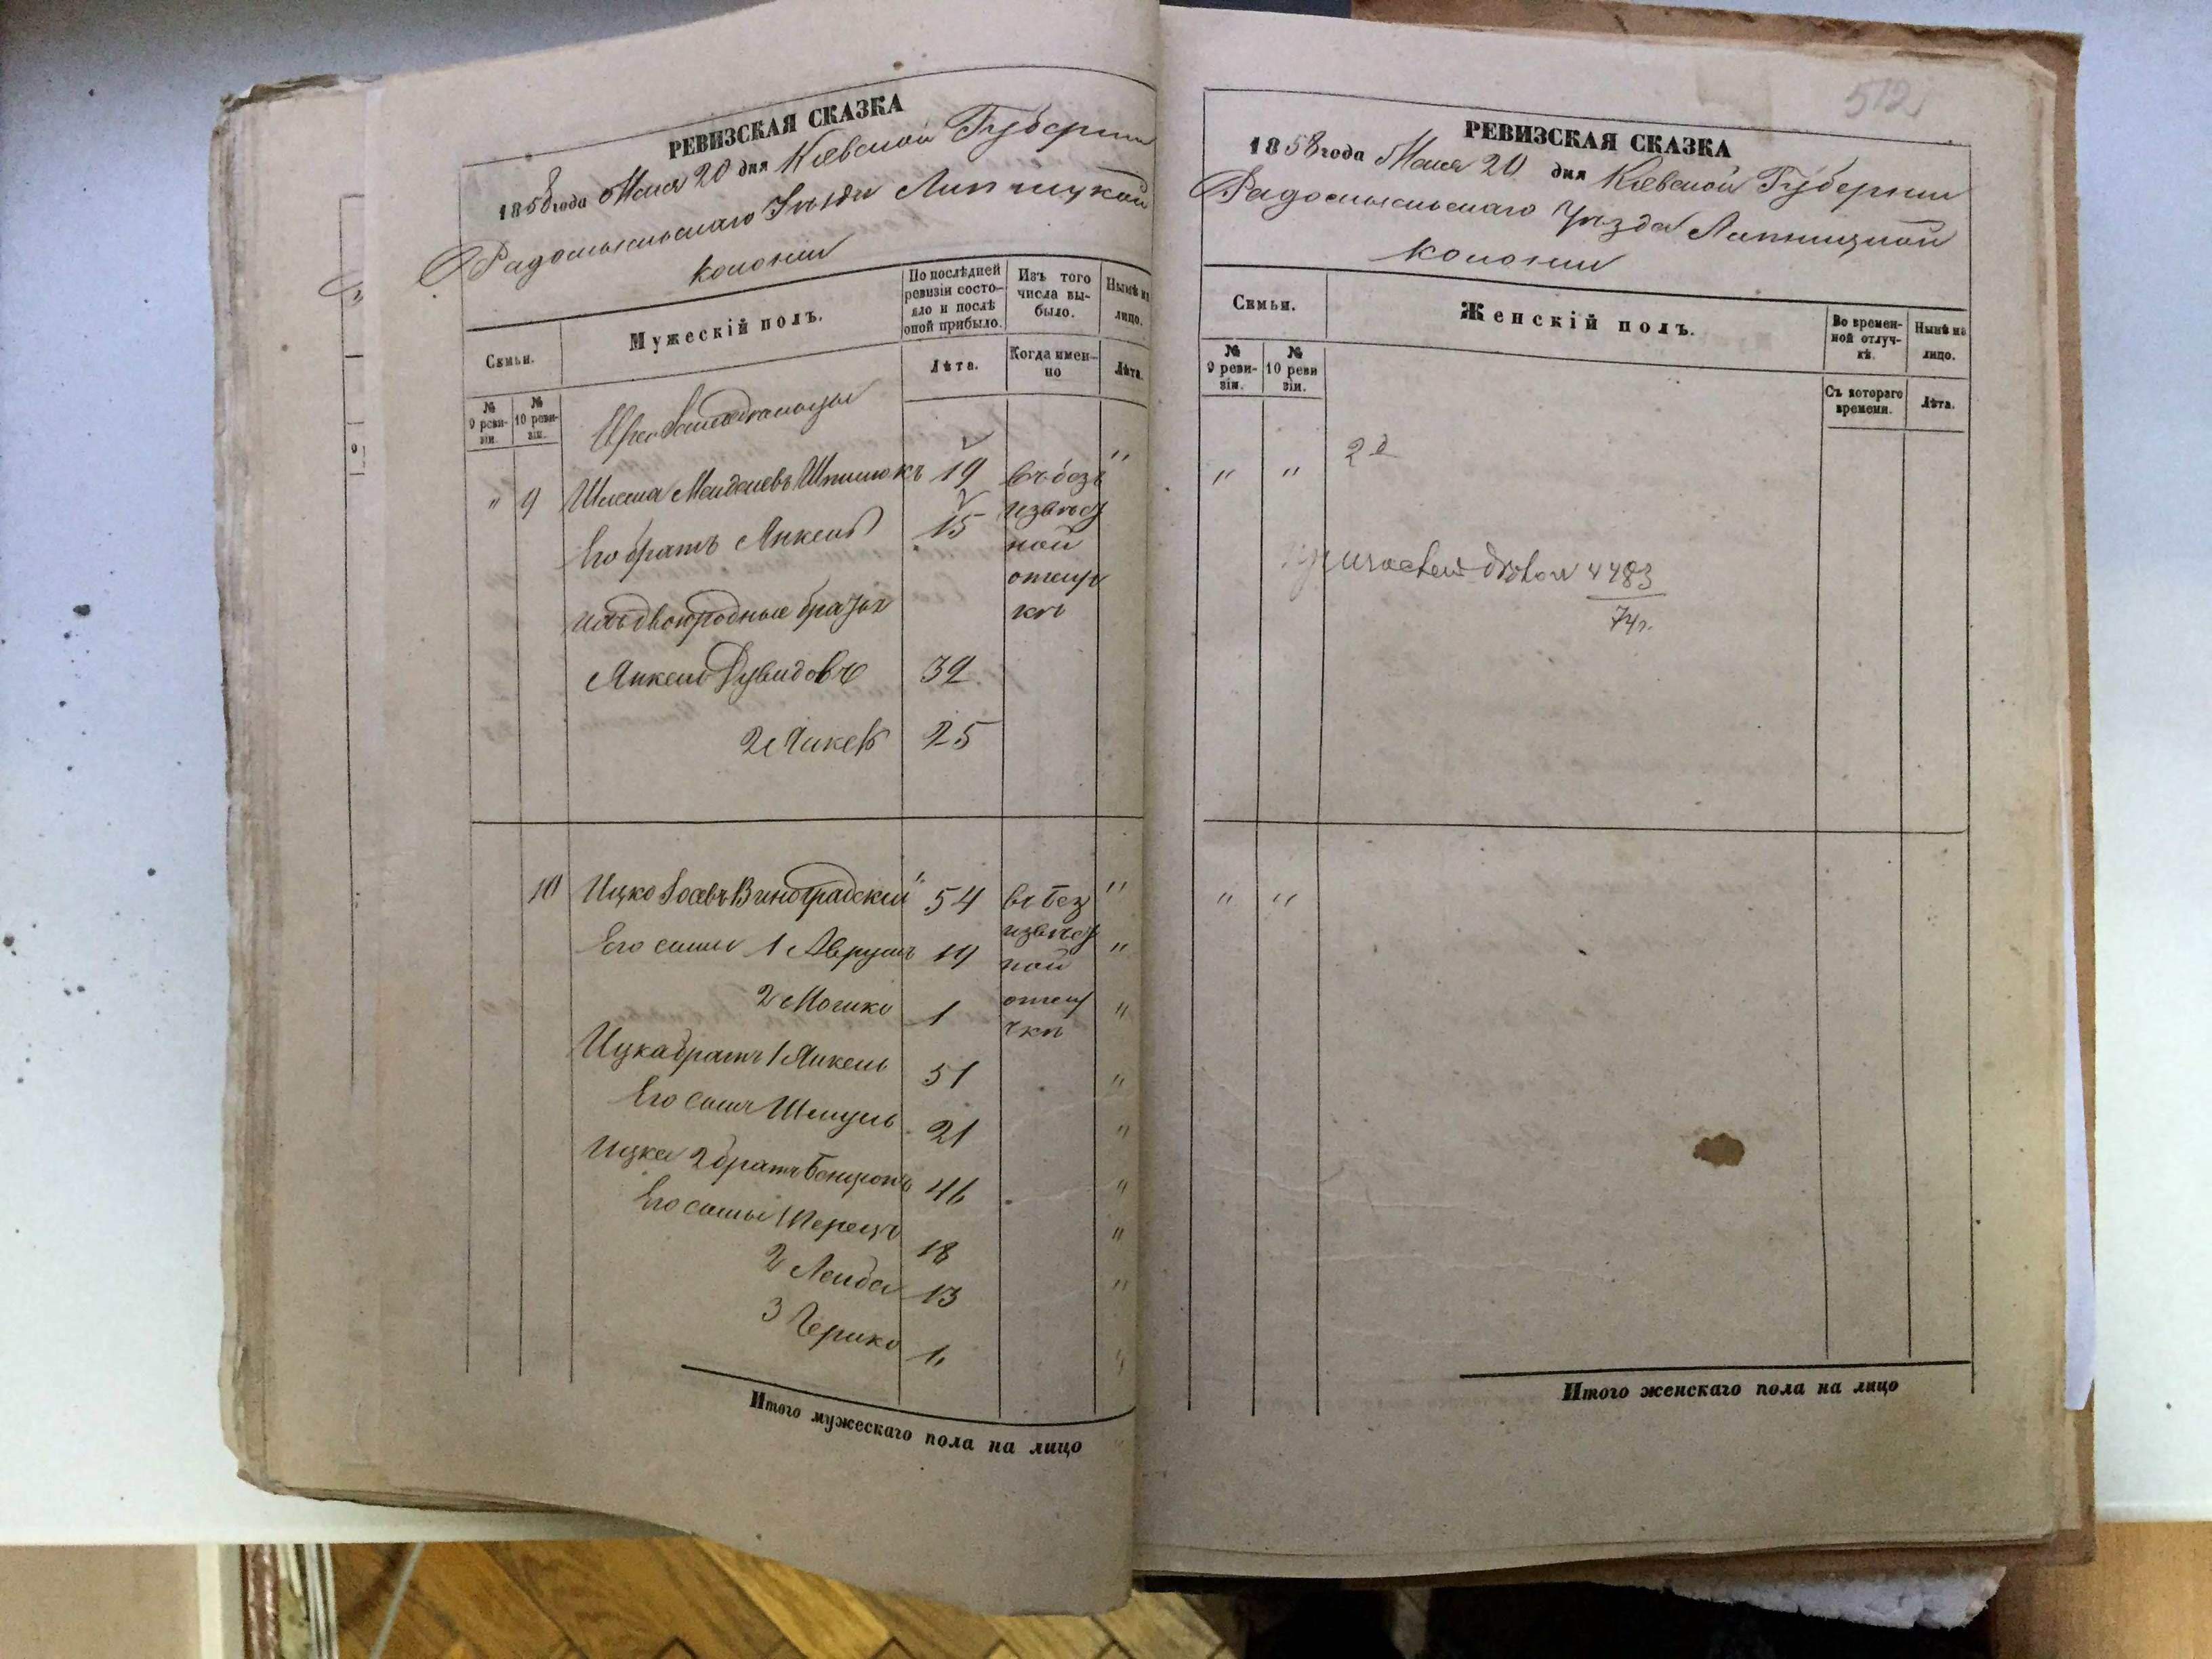 РЕВИЗСКАЯ СКАЗКА
1858 года Мая 20 дня Кіевской Губерніи
Радомысльскаго Уѣзда Липницкой
колоніи
Семьи.
Мужескій полъ.
По послѣдней ревизіи состояло и послѣ оной прибыло.
Изъ того числа выбыло.
Нынѣ на лицо.
№ 9 ревизіи.
№ 10 ревизіи.
Лѣта.
Когда именно
Лѣта.
" 9 19 въ безъ "
Его братъ Янкель 15 извѣст
ной
отлуч
ихъ двоюродные братья кѣ
Янкель Дувидовъ 39
2й 25
10 Ицко Іосевъ Виноградскій 54 въ без "
Его сыны 1 Аврумъ 19 извѣст "
ной
2 Мошко 1 отлу "
чкѣ
Ицка братъ 1 Янкель 51 "
Его сынъ Шмуль 21 "
Ицка 2 братъ Бенционъ 46 "
Его сыны 1 Перецъ 18 "
2 Лейба 13 "
3 Гершко 1 "
Итого мужескаго пола на лицо
512
РЕВИЗСКАЯ СКАЗКА
1858 года Мая 20 дня Кіевской Губерніи
Радомысльскаго Уѣзда Липницкой
колоніи
Семьи.
Женскій полъ.
Во временной отлучкѣ.
Нынѣ на лицо.
№ 9 ревизіи.
№ 10 ревизіи.
Съ котораго времени.
Лѣта.
" "
4483
74г.
" "
Итого женскаго пола на лицо